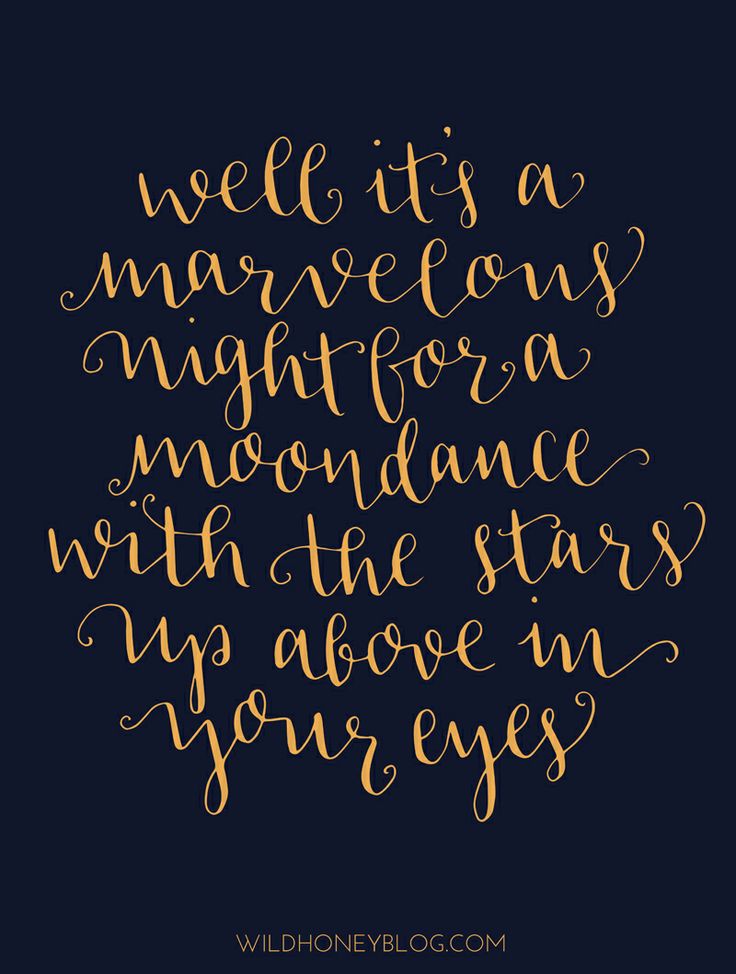 well it's a
marvelous
night for a
moondance
with the stars
up above in
your eyes
WILDHONEYBLOG.COM